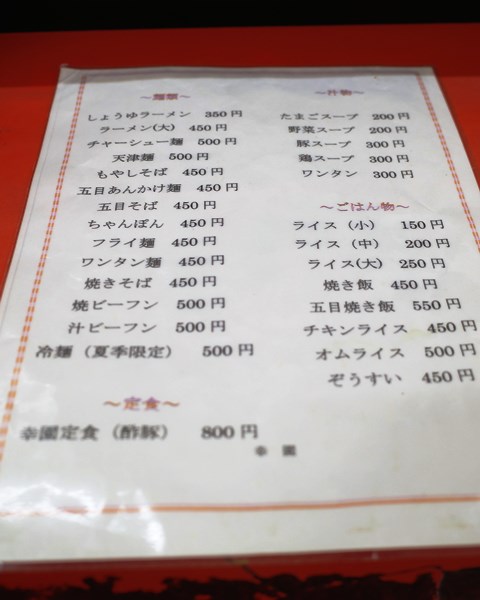 ～麺類～
しょうゆラーメン 350円
ラーメン(大) 450円
チャーシュー麺 500円
天津麺 500円
もやしそば 450円
五目あんかけ麺 450円
五目そば 450円
ちゃんぽん 450円
フライ麺 450円
ワンタン麺 450円
焼きそば 450円
焼ビーフン 500円
汁ビーフン 500円
冷麺（夏季限定） 500円
～定食～
幸園定食（酢豚） 800円
～汁物～
たまごスープ 200円
野菜スープ 200円
豚スープ 300円
鶏スープ 300円
ワンタン 300円
～ごはん物～
ライス（小） 150円
ライス（中） 200円
ライス(大) 250円
焼き飯 450円
五目焼き飯 550円
チキンライス 450円
オムライス 500円
ぞうすい 450円
幸 園